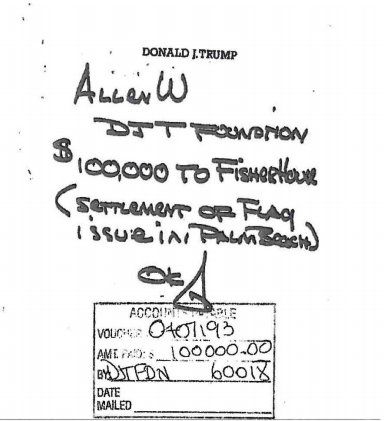 DONALD J. TRUMP
ALLEN W
DJT FOUNDATION
$100,000 TO FISHERHOUSE
(SETTLEMENT OF FLAG
ISSUE IN PALM BEACH)
OK
ACCOUNTS PAYABLE
VOUCHER 0407193
AMT. PAID: $ 100000.00
BY DJTFDN 6001X
DATE
MAILED